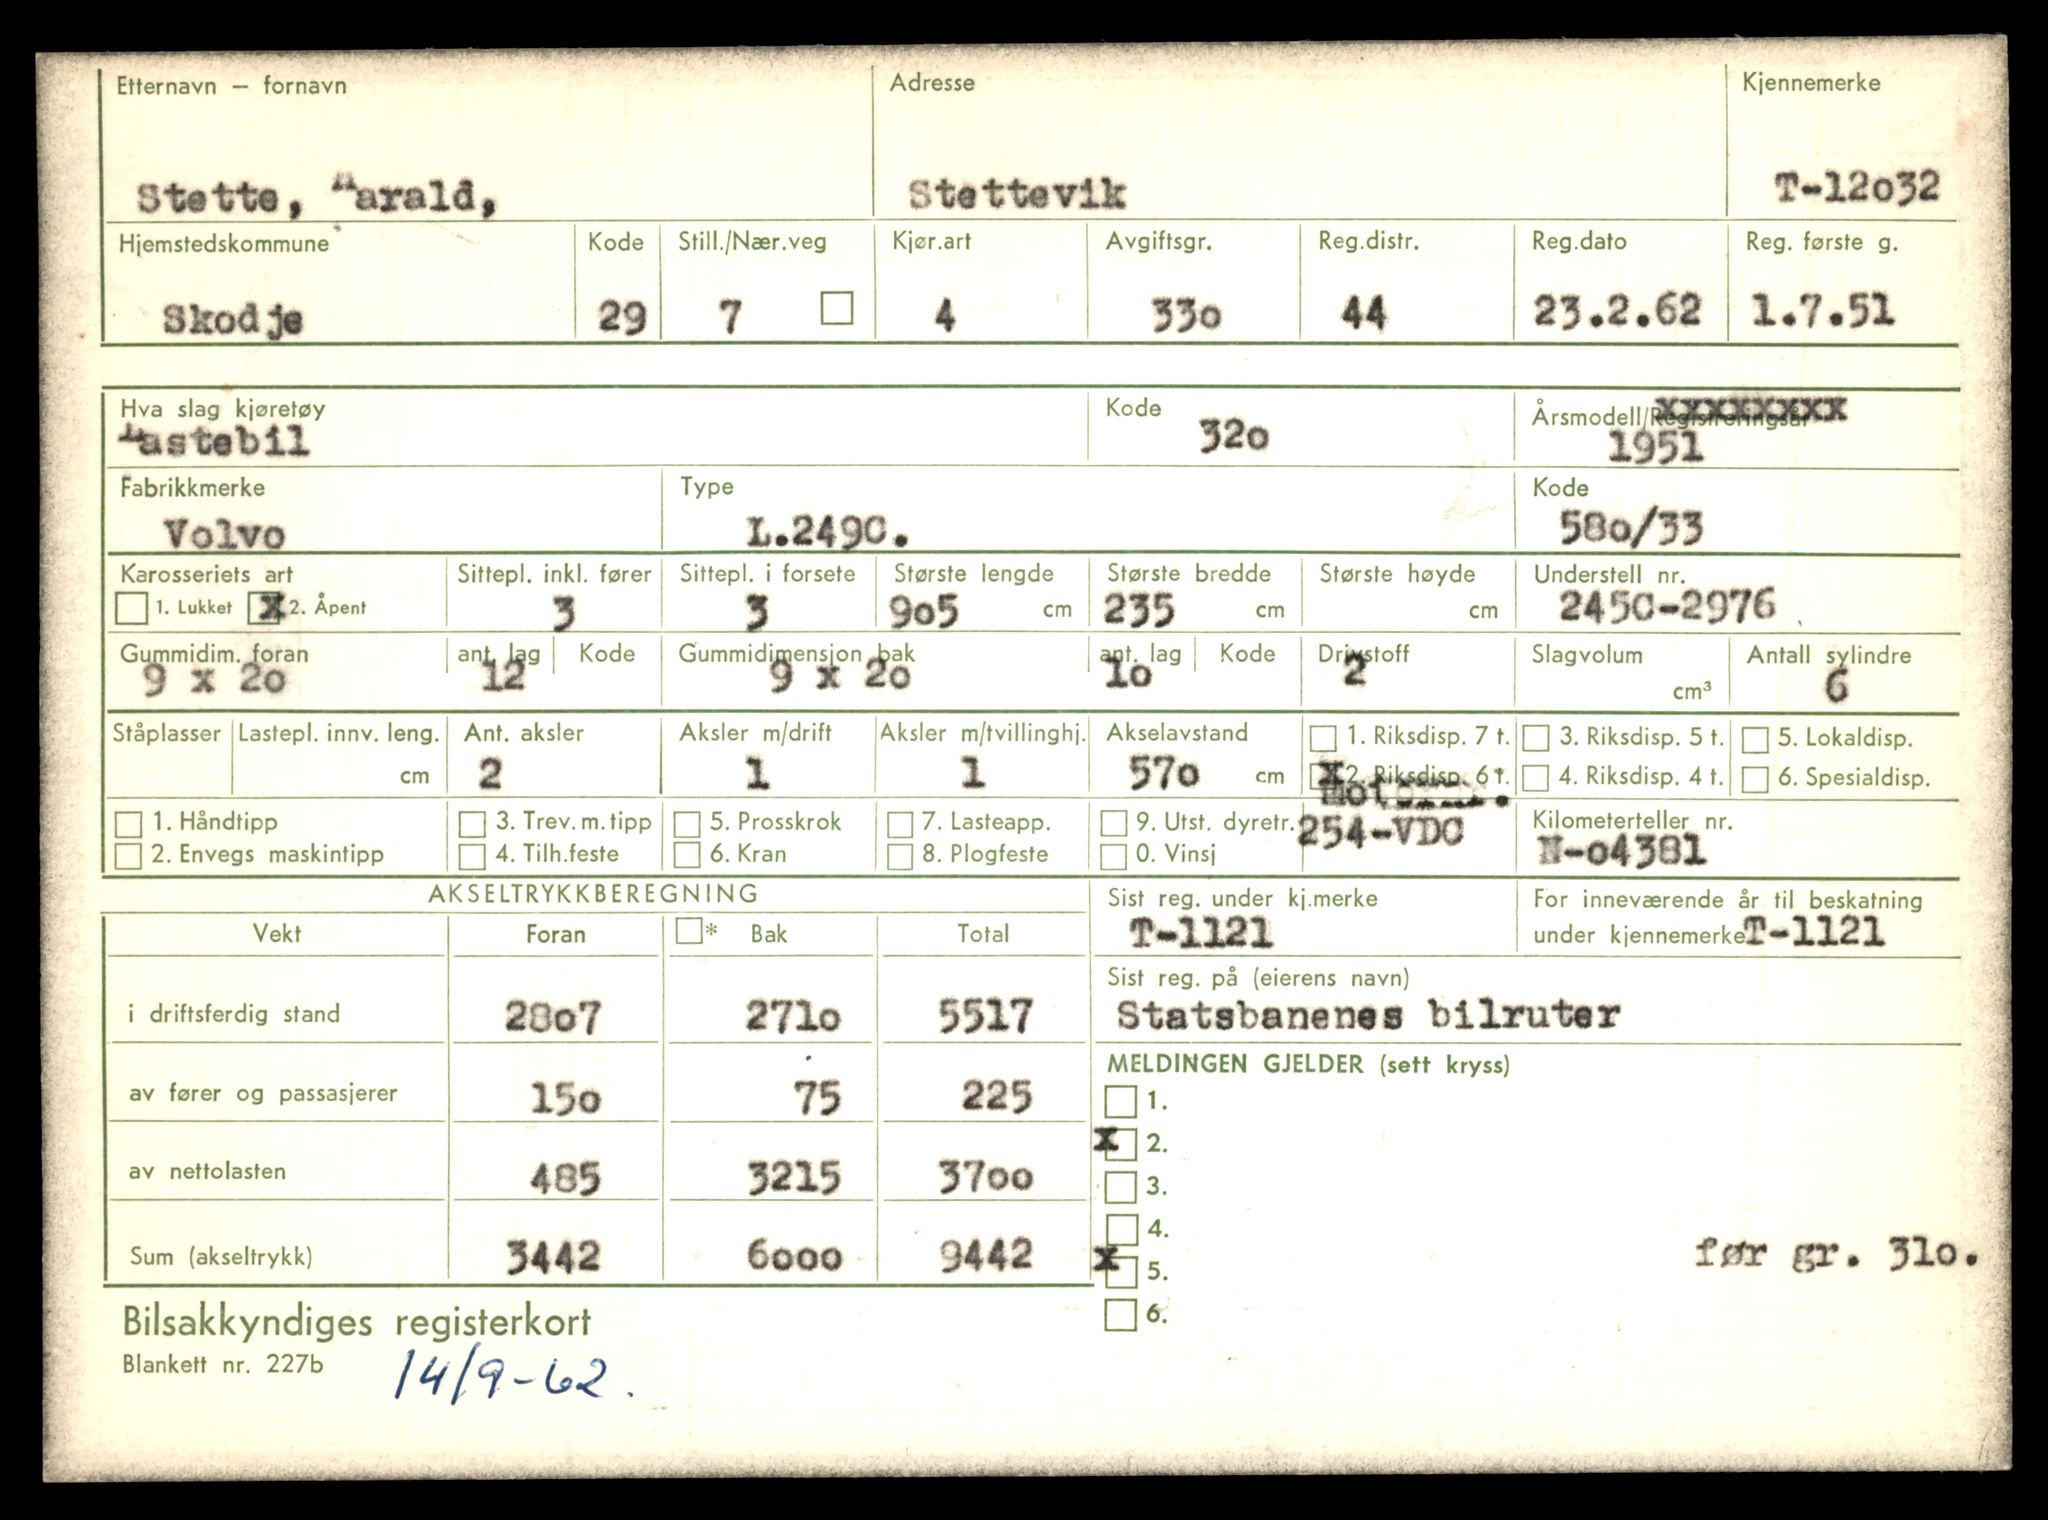 Etternavn — fornavn Adresse Kjennemerke
Stette, Harald, Stettevik T-12o32
Hjemstedskommune Kode Still./Nær.veg Kjør.art Avgiftsgr. Reg.distr. Reg.dato Reg. første g.
Skodje 29 7 4 33o 44 23.2.62 1.7.51
Hva slag kjøretøy Kode Årsmodell/Registreringsår
Lastebil 32o 1951
Fabrikkmerke Type Kode
Volvo L.249C. 58o/33
Karosseriets art Sittepl. inkl. fører Sittepl. i forsete Største lengde Største bredde Største høyde Understell nr.
1. Lukket x 2. Åpent 3 3 9o5 cm 235 cm cm 245C-2976
Gummidim. foran ant. lag Kode Gummidimensjon bak ant. lag Kode Drivstoff Slagvolum Antall sylindre
9 x 2o 12 9 x 2o 1o 2 cm³ 6
Ståplasser Lastepl. innv. leng. Ant. aksler Aksler m/drift Aksler m/tvillinghj. Akselavstand 1. Riksdisp. 7 t. 3. Riksdisp. 5 t. 5. Lokaldisp.
cm 2 1 1 57o cm x 2. Riksdisp. 6 t. 4. Riksdisp. 4 t. 6. Spesialdisp.
1. Håndtipp 3. Trev. m. tipp 5. Prosskrok 7. Lasteapp. 9. Utst. dyretr. 254-VDC Kilometerteller nr.
2. Envegs maskintipp 4. Tilh.feste 6. Kran 8. Plogfeste 0. Vinsj N-o4381
AKSELTRYKKBEREGNING Sist reg. under kj.merke For inneværende år til beskatning
Vekt Foran * Bak Total T-1121 under kjennemerke T-1121
Sist reg. på (eierens navn)
i driftsferdig stand 28o7 271o 5517 Statsbanenes bilruter
MELDINGEN GJELDER (sett kryss)
av fører og passasjerer 15o 75 225 1.
x 2.
av nettolasten 485 3215 37oo 3.
4.
Sum (akseltrykk) 3442 6ooo 9442 x 5. før gr. 31o.
6.
Bilsakkyndiges registerkort
Blankett nr. 227b 14/9-62.